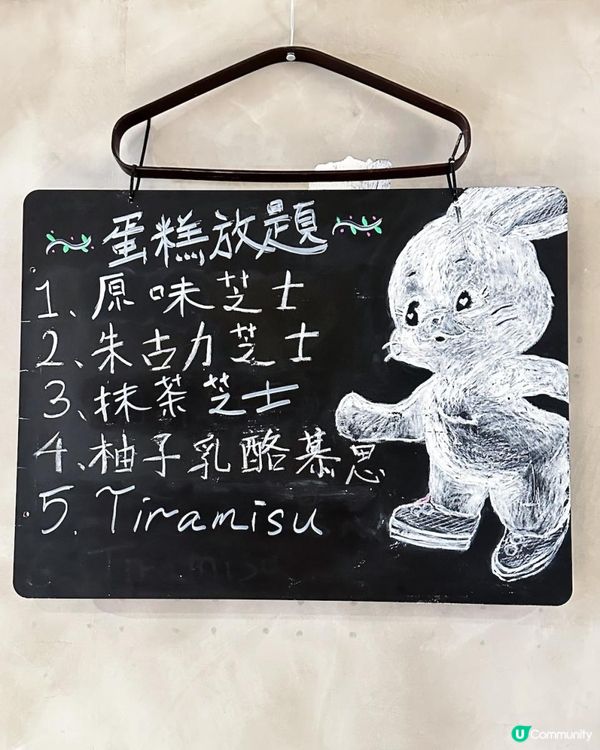 蛋糕放題
1、原味芝士
2、朱古力芝士
3、抹茶芝士
4、柚子乳酪慕思
5. Tiramisu
Tiramisu
U Community